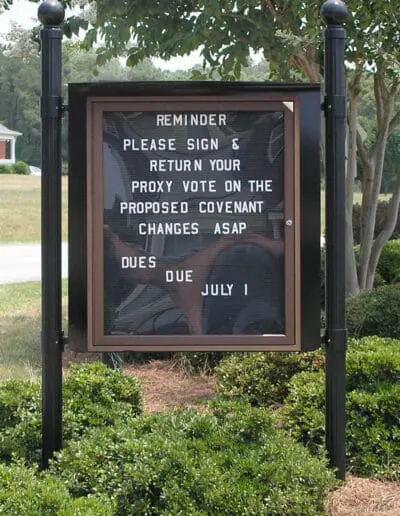 REMINDER
PLEASE SIGN &
RETURN YOUR
PROXY VOTE ON THE
PROPOSED COVENANT
CHANGES ASAP
DUES
DUE
JULY 1